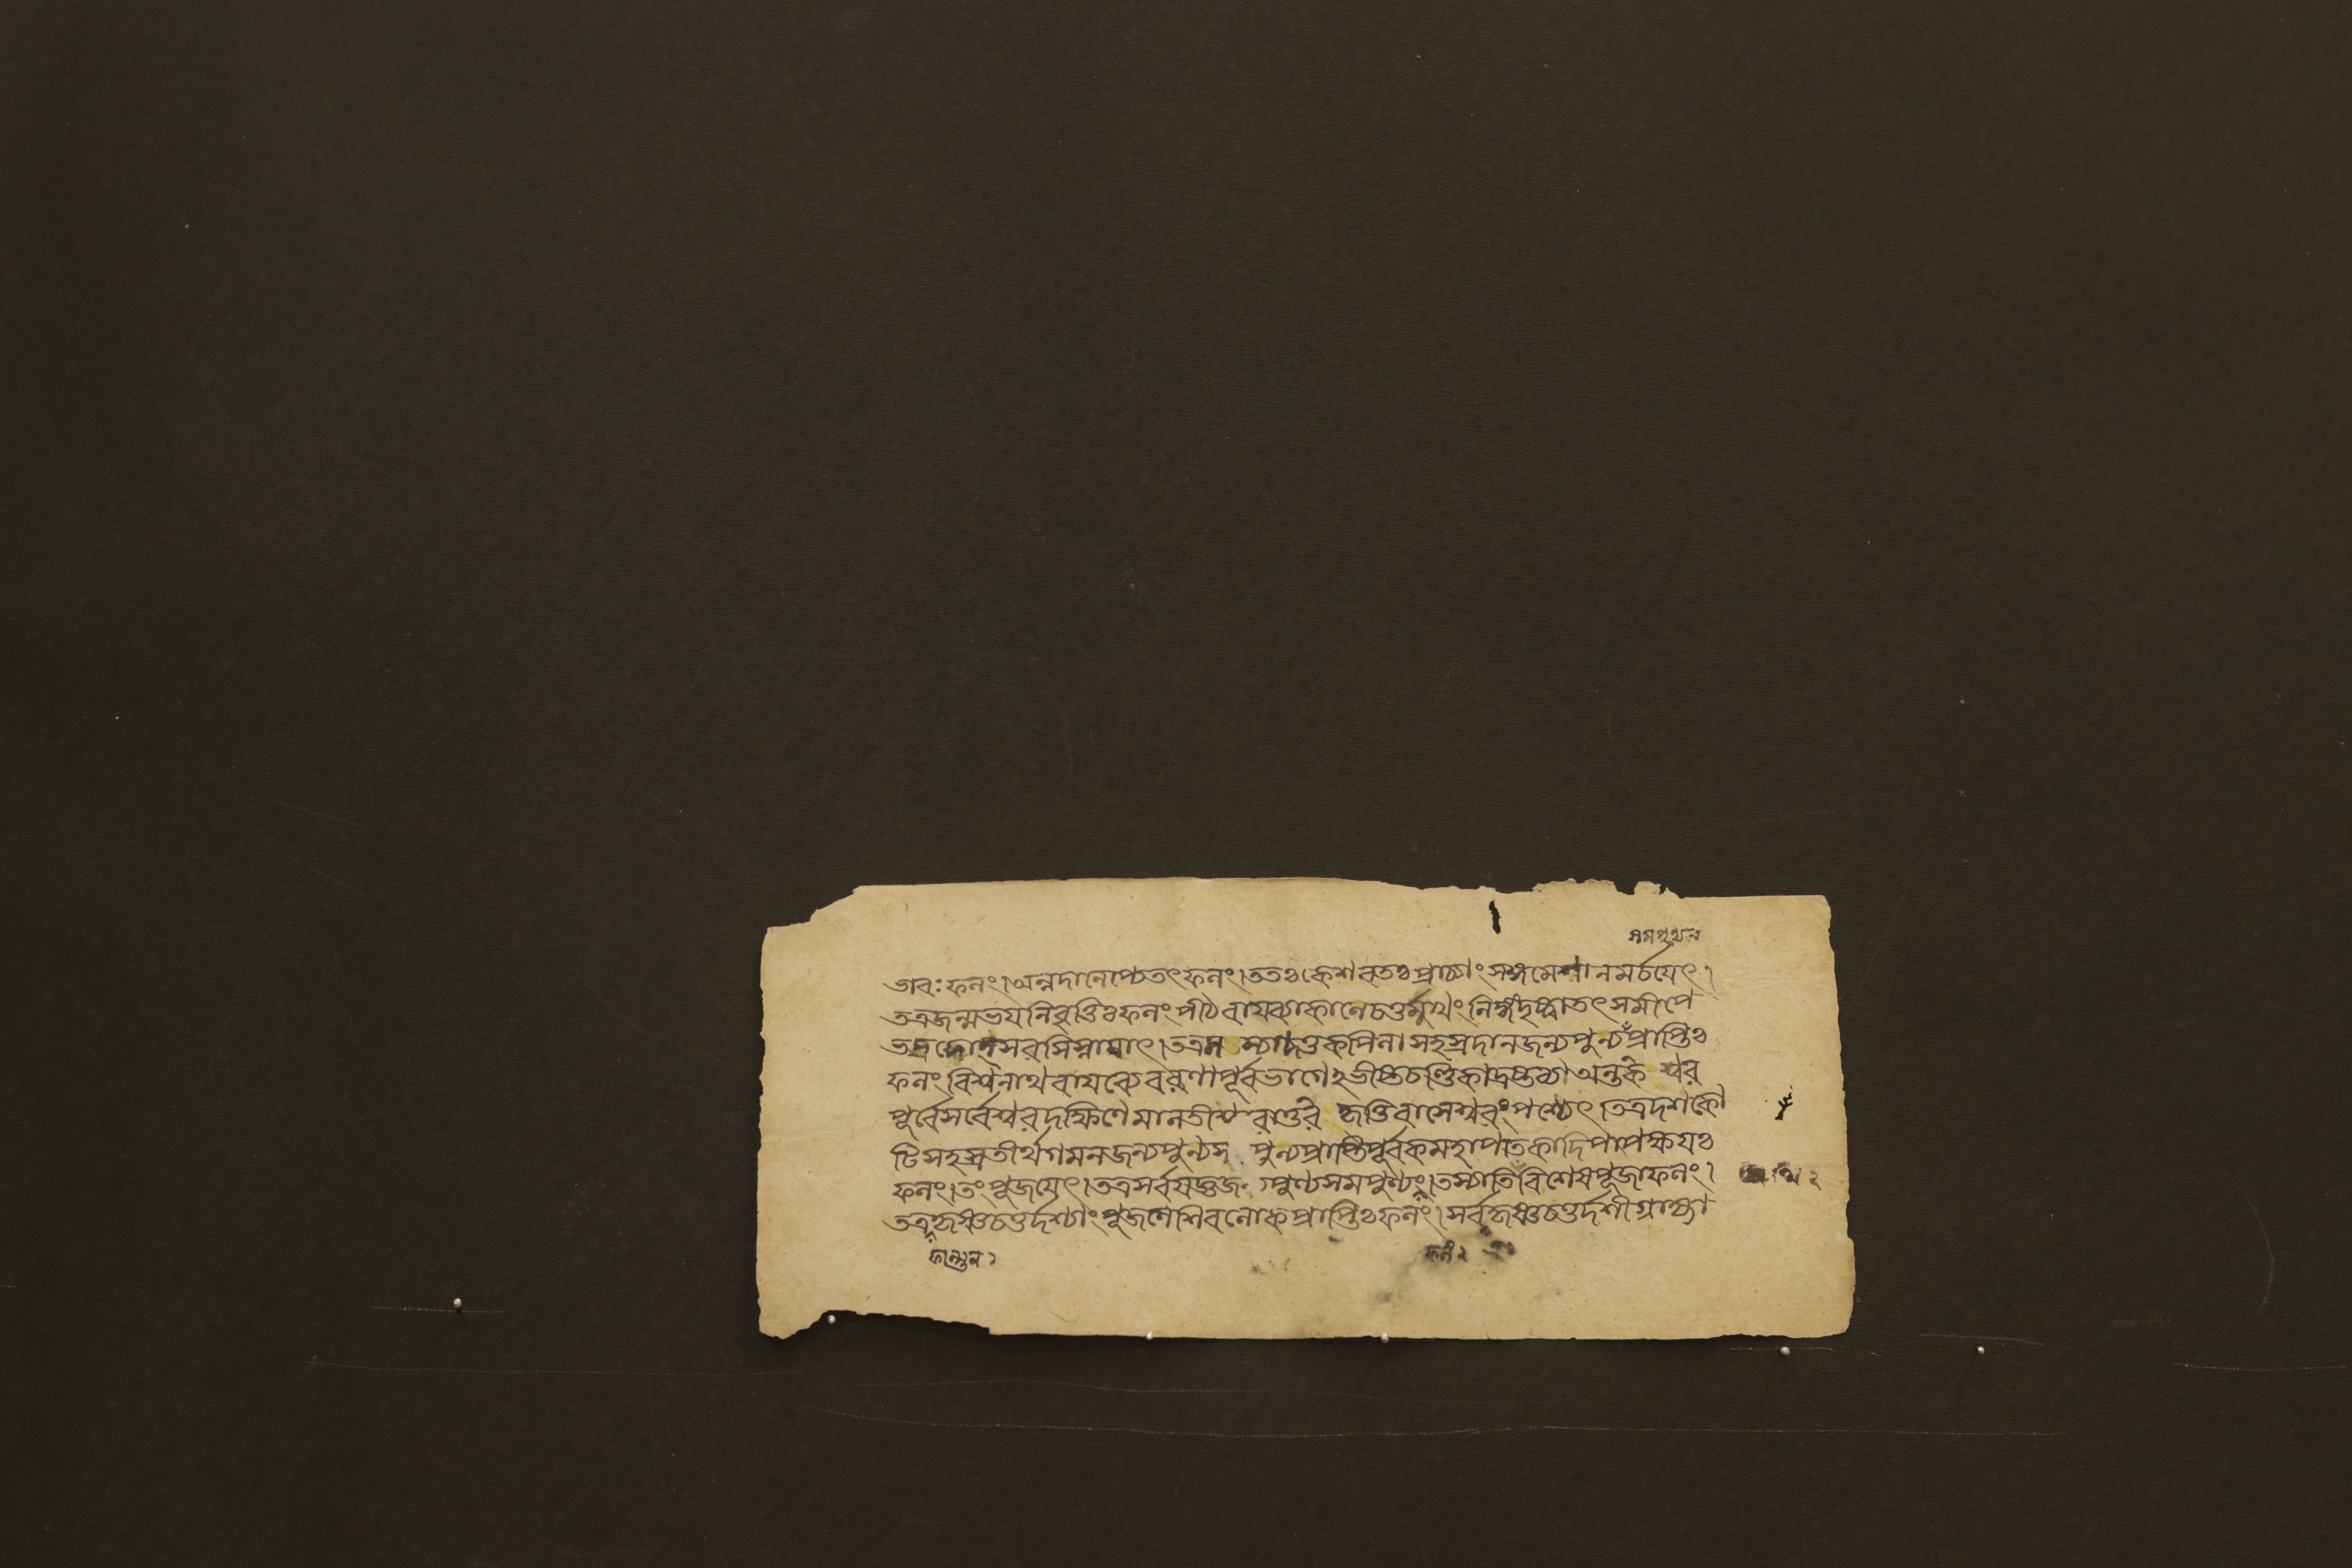 ভাবঃ ফলং।অন্নদানেপ্যেতৎফলং।ততঃকেশবতঃপ্রাচ্যাংসঙ্গমেশানমর্চযেৎ।
তত্রজন্মভযনিবৃত্তিঃফলংপীঠবাযব্যাকোনেচতুর্মুখংলিঙ্গংদৃষ্ট্বাতৎসমীপে
ভদ্রদোহসরসিস্নাযাৎ।তত্র কপিলাসহস্রদানজন্যপুন্যপ্রাপ্তিঃ
ফলংবিশ্বনাথবাযব্যেবরণাপূর্বভাগে চণ্ডিকাদ্রষ্টব্যাঅন্তকেশ্বর
পূর্বেসর্বেশ্বরদক্ষিণেমালতীশ্বরাত্তরে কৃত্তিবাসেশ্বরংপশ্যেৎ।তত্রদশকো
টিসহস্রতীর্থগমনজন্যপুন্যস পুন্যপ্রাপ্তিপূর্বকমহাপাতকাদিপাপক্ষযঃ
ফলং।তংপূজযেৎ।তত্রসর্বযজ্ঞজ পুণ্যসমপুণ্যং।তস্যাতিবিশেষপূজাফলং।
তত্রকৃষ্ণচতুর্দশ্যাংপূজনেশিবলোকপ্রাপ্তিঃফলং।সর্বকৃষ্ণচতুর্দশীগ্রাহ্যা
ফাল্গুন ১
ফলং ২